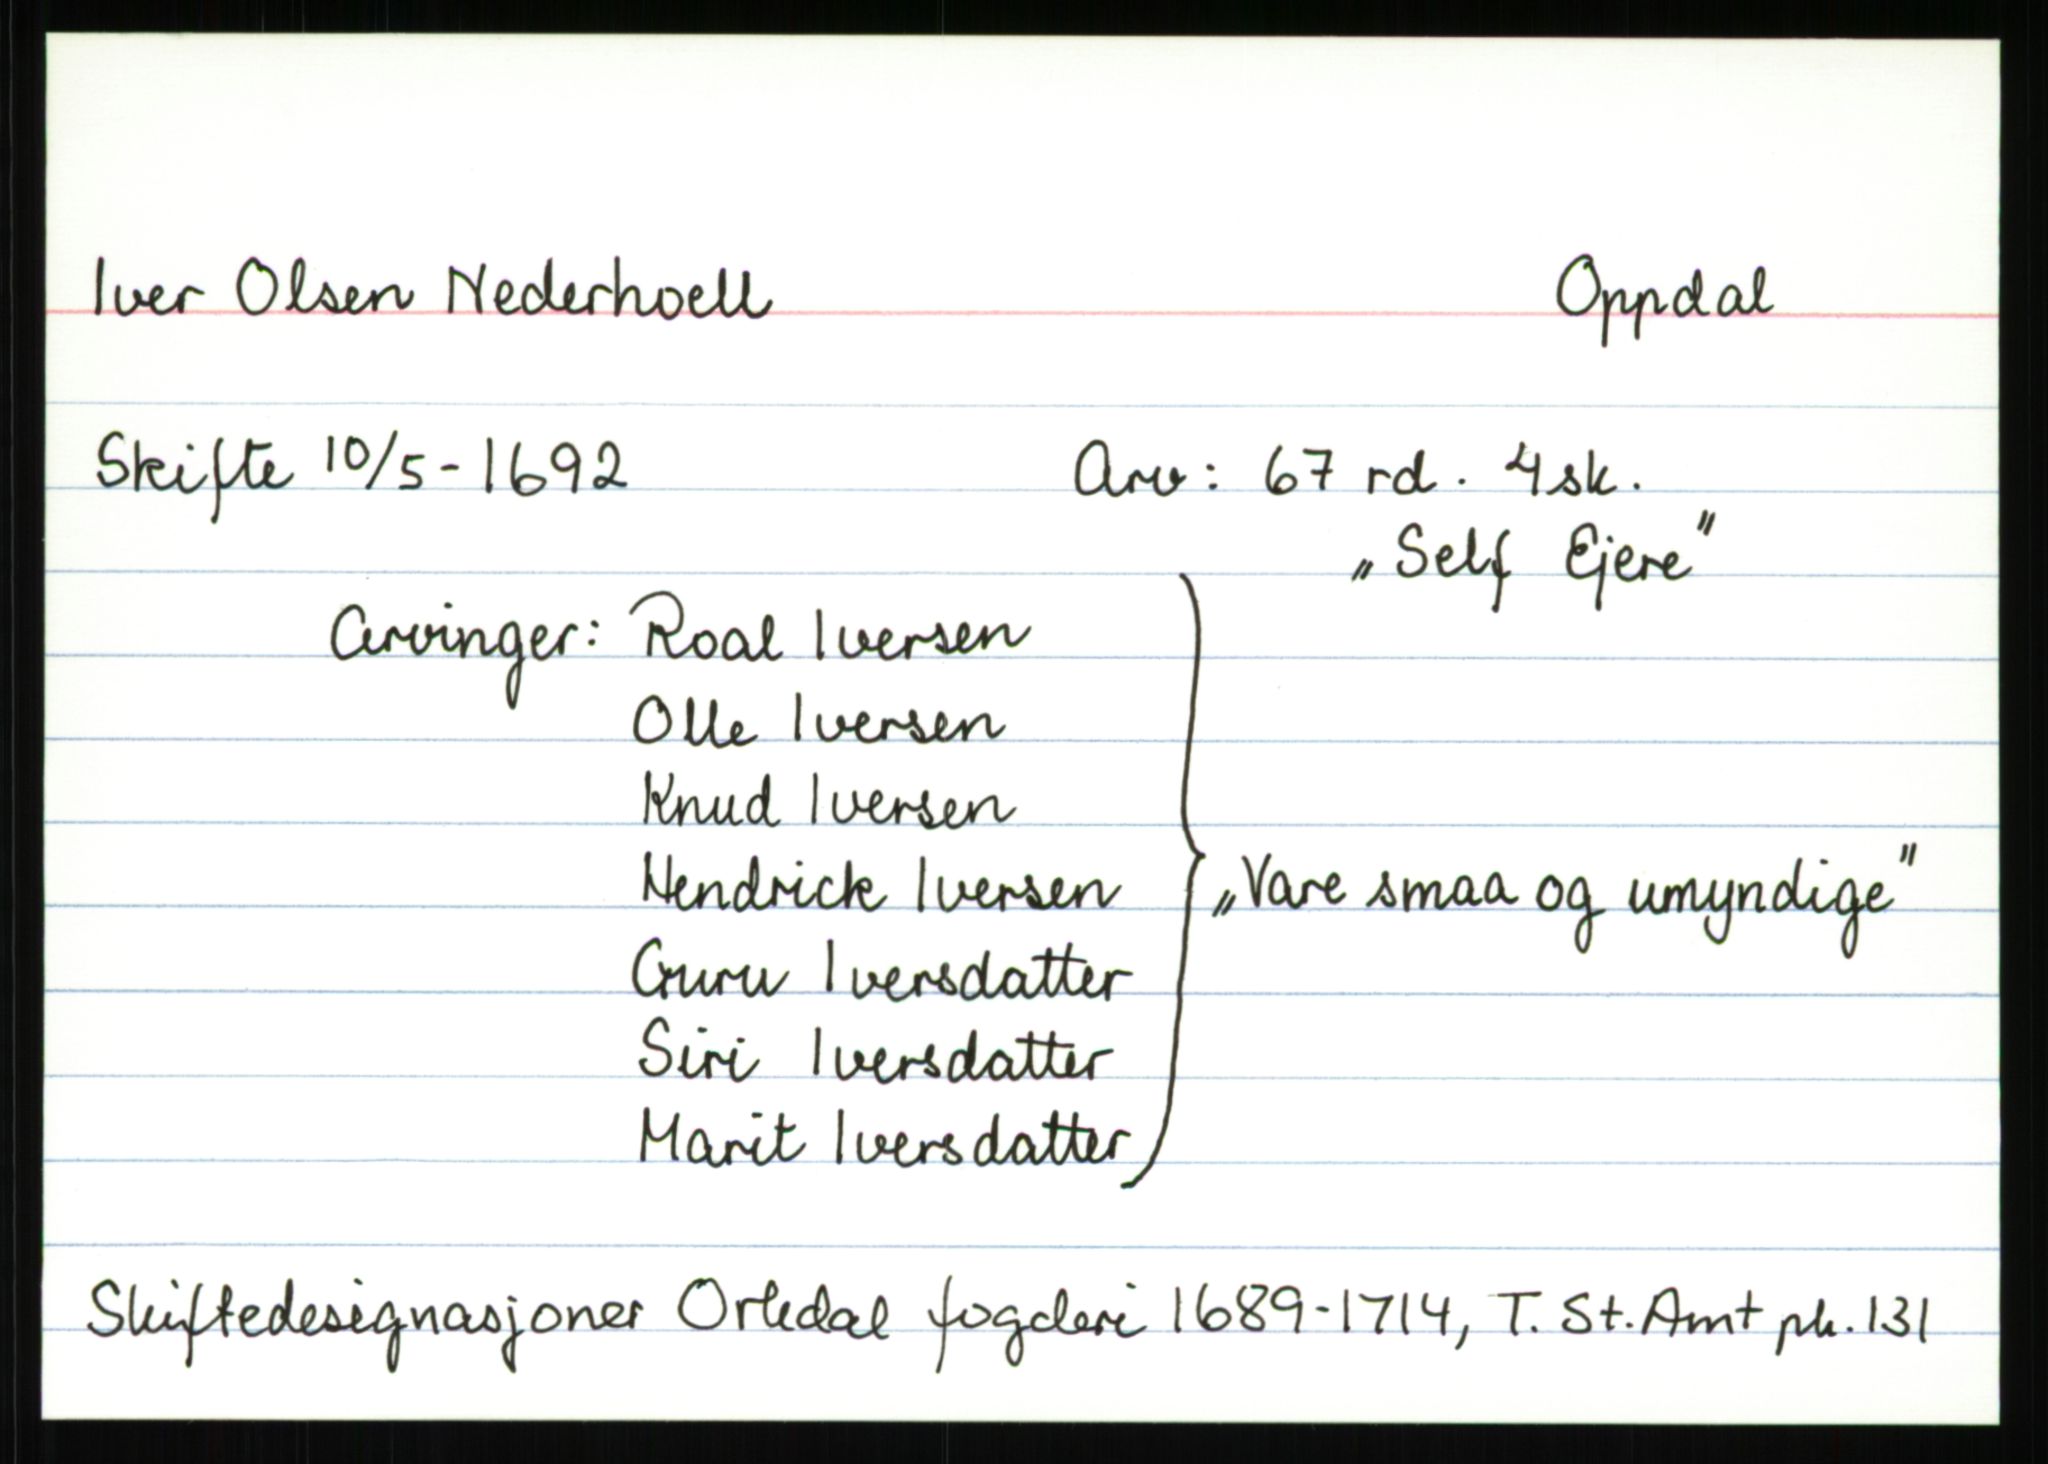 Iver Olsen Nederhoell Oppdal
Skifte 10/5-1692 Arv: 67 rd. 4 sk.
„Self Ejere"
Arvinger: Roal Iversen
Olle Iversen
Knud Iversen
Hendrick Iversen „Vare smaa og umyndige"
Guru Iversdatter
Siri Iversdatter
Marit Iversdatter
Skiftedesignasjoner Orkdal fogderi 1689-1714, T. St. Amt pk. 131